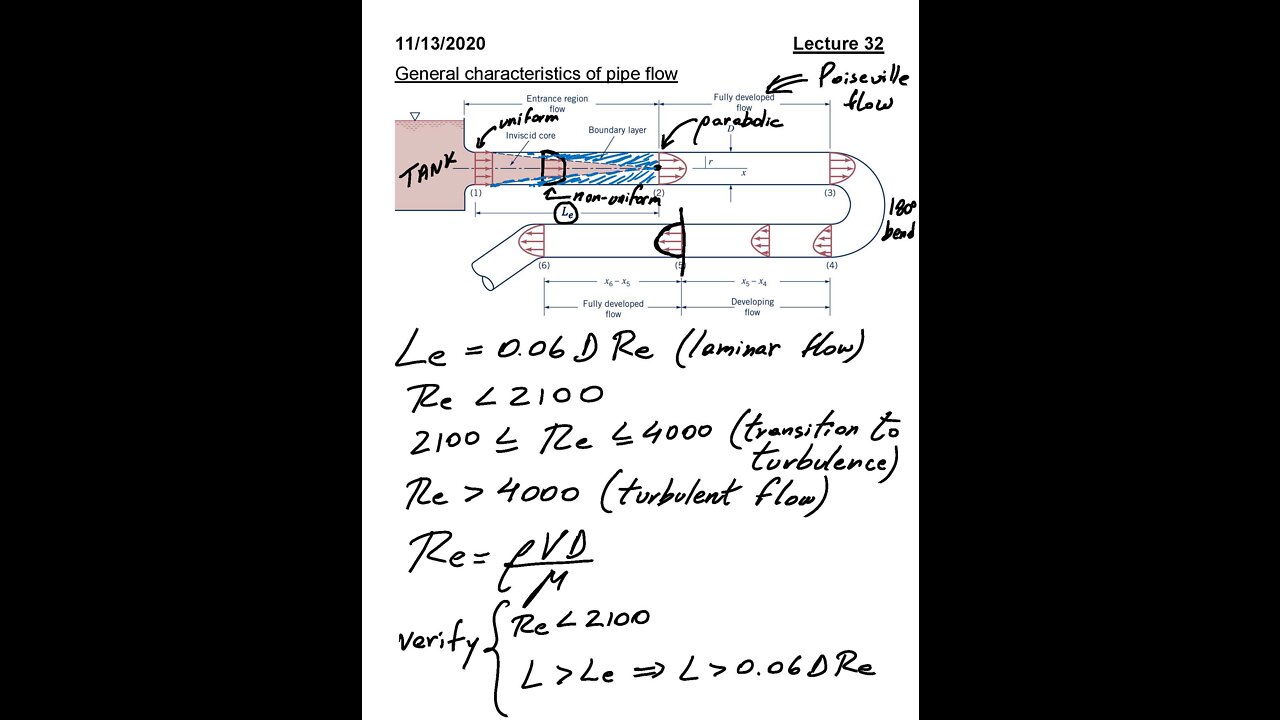 11/13/2020 Lecture 32
General characteristics of pipe flow
Poiseville
flow
Entrance region
flow
Fully developed
flow
uniform
parabolic
Inviscid core
Boundary layer
D
TANK
r
x
(1)
(2)
(3)
non-uniform
Le
180°
bend
(6)
(5)
(4)
x6 – x5
x5 – x4
Fully developed
flow
Developing
flow
Le = 0.06 D Re (laminar flow)
Re < 2100
2100 ≤ Re ≤ 4000 (transition to
turbulence)
Re > 4000 (turbulent flow)
Re = ρVD
μ
verify { Re < 2100
L > Le ⇒ L > 0.06 D Re